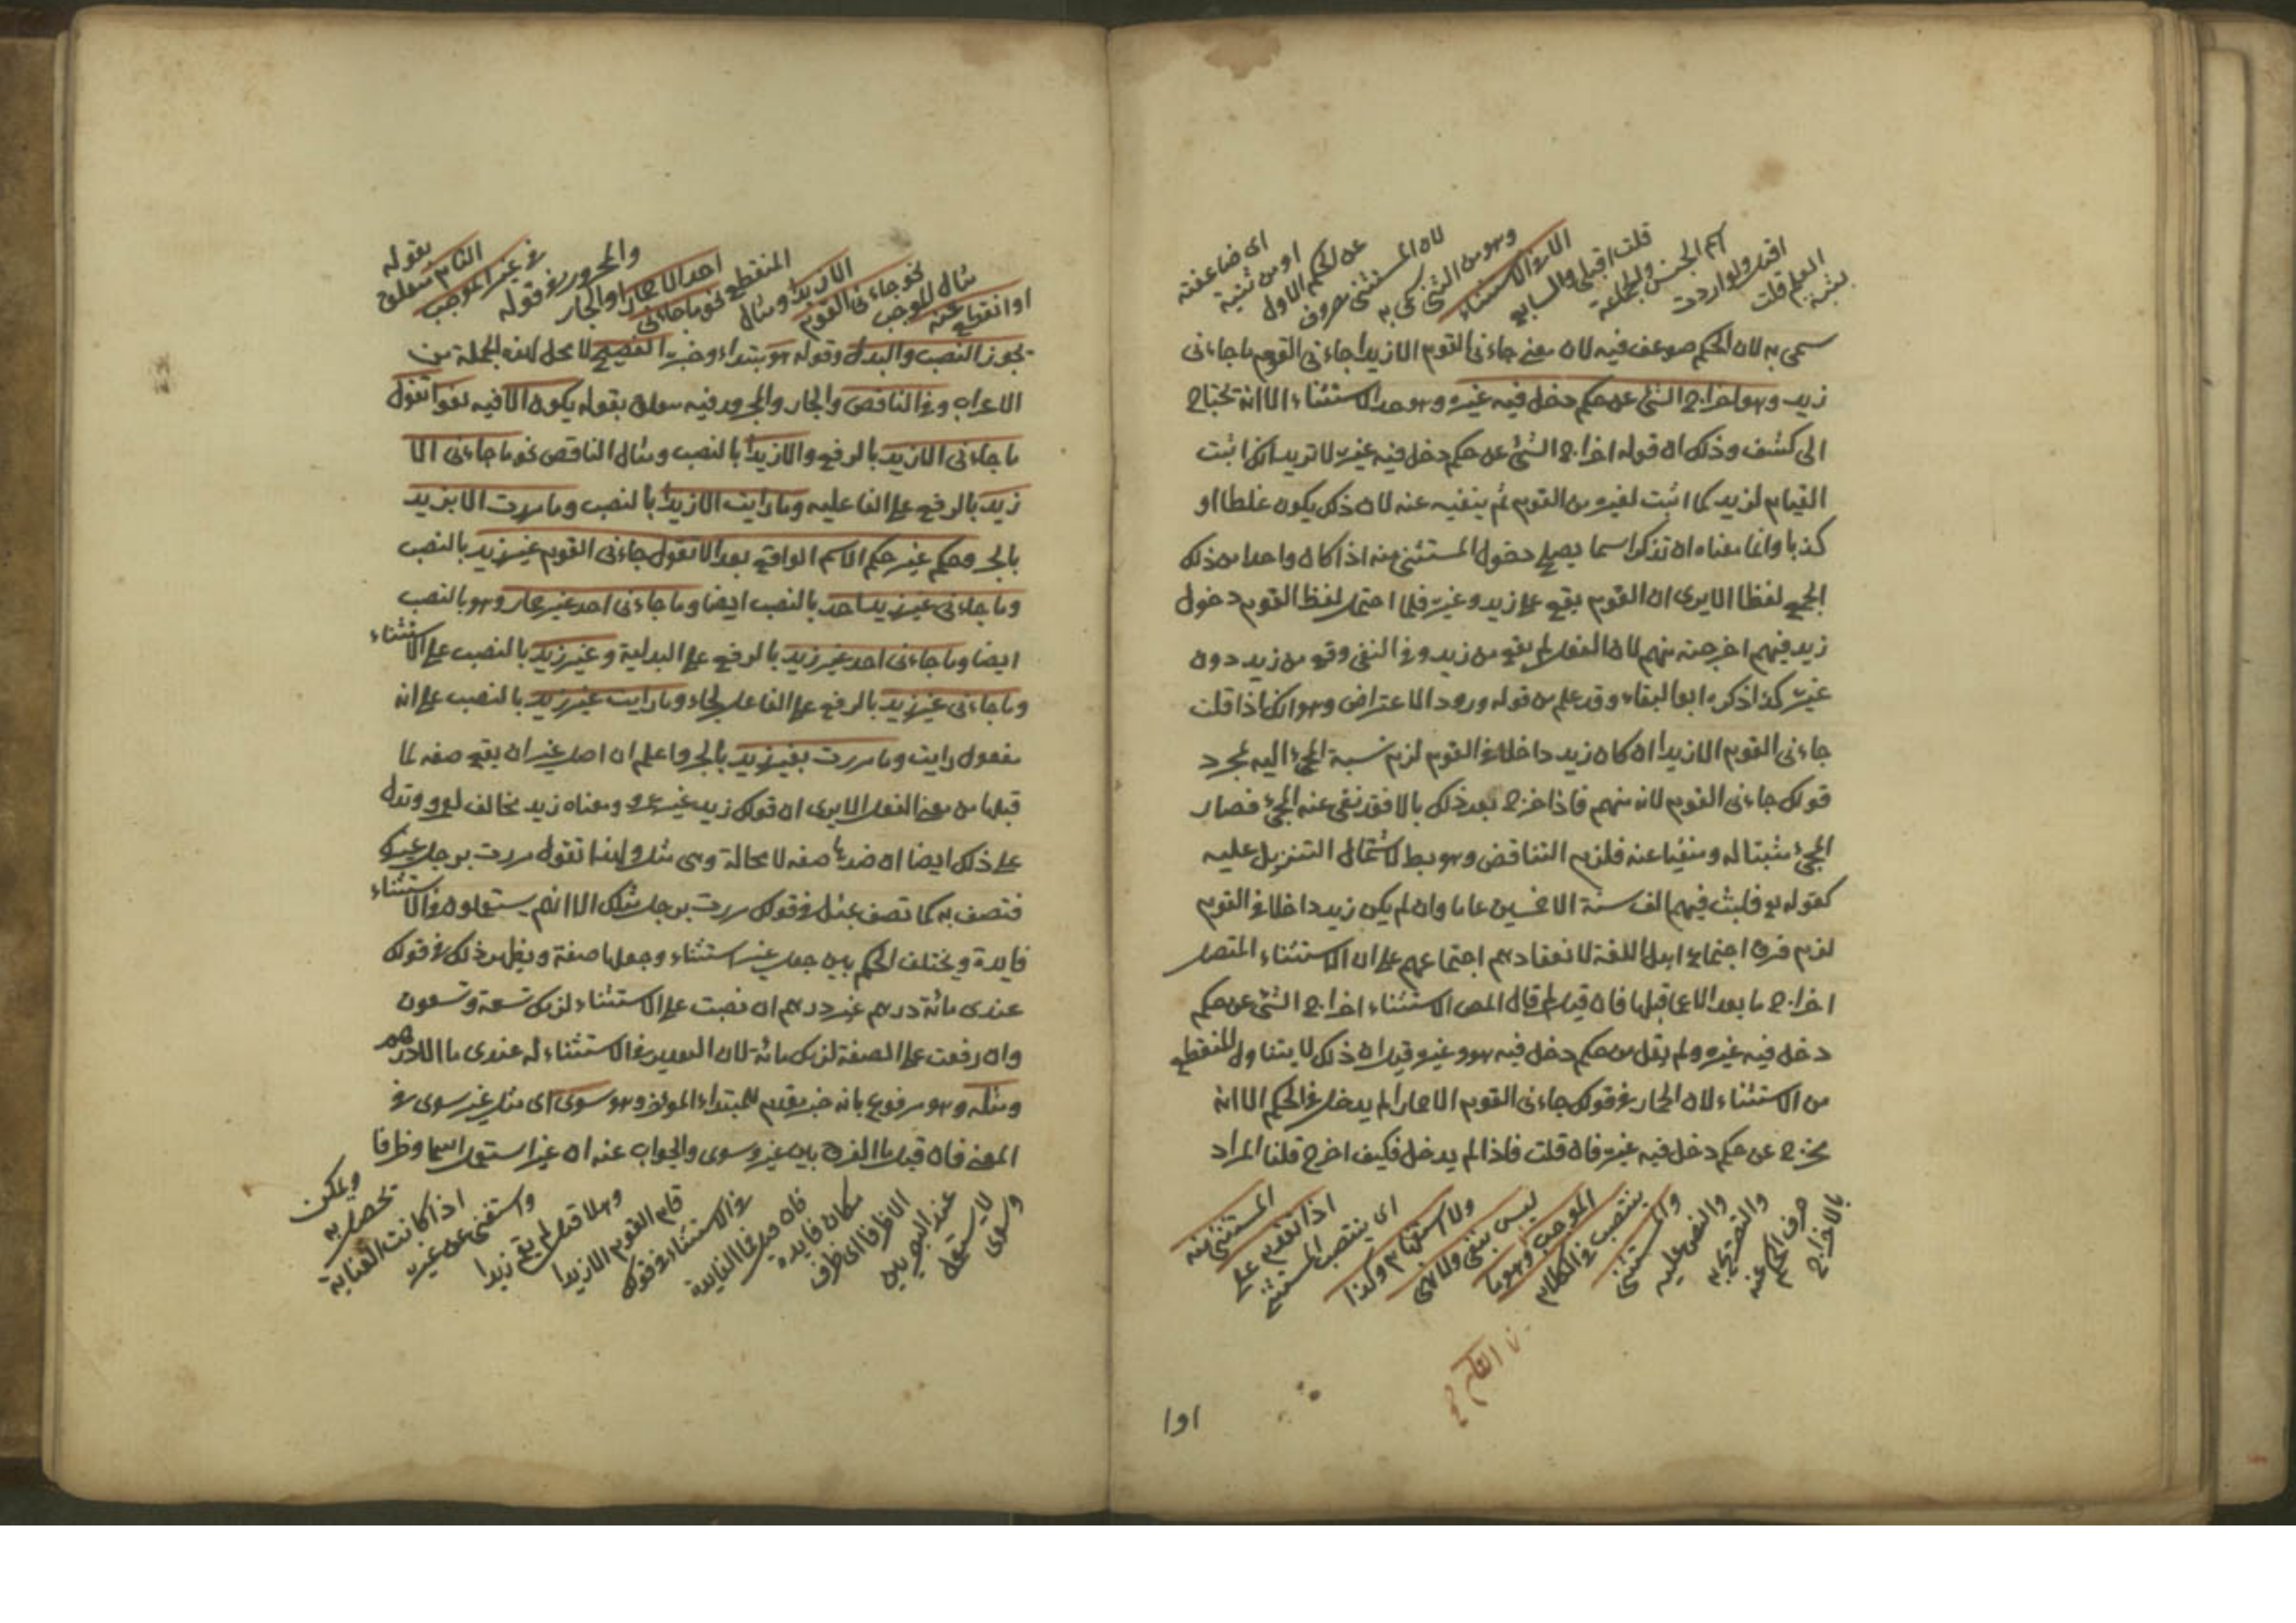 سمى به لان الحكم ضوعف فيه لان معنى جاءنى القوم الا زيدا جاءنى القوم ما جاءنى
زيد وهو اخراج الشئ عن حكم دخل فيه غيره وهو حد الاستثناء الا انه تحتاج
الى كشف وذلك ان قوله اخراج الشئ عن حكم دخل فيه غيره لا تريد انك اثبت
القيام لزيد كما اثبت لغيره من القوم ثم ينفيه عنه لان ذلك يكون غلطا او
كذبا وانما معناه ان تذكر اسما يصلح دخول المستثنى منه اذا كان واحدا من ذلك
الجمع لفظا الا يرى ان القوم يقع على زيد وغيره فلما احتمل لفظ القوم دخول
زيد فيهم اخرجته منهم لان الفعل لم يقع من زيد وفى النفى وقع من زيد دون
غيره كذا ذكره ابو البقاء وقد علم من قوله ورود الاعتراض وهو انك اذا قلت
جاءنى القوم الا زيدا ان كان زيد داخلا فى القوم لزم نسبة المجئ اليه بمجرد
قولك جاءنى القوم لانه منهم فاذا خرج بعد ذلك بالا فقد نفى عنه المجئ فصار
المجئ مثبتا له ومنفيا عنه فلزم التناقض وهو بط لاشتمال التنزيل عليه
كقوله تع فلبث فيهم الف سنة الا خمسين عاما وان لم يكن زيد داخلا فى القوم
لزم خرق اجتماع اهل اللغة لانعقادهم اجتماعهم على ان الاستثناء المتصل
اخراج ما بعد الا عما قبلها فان قيل لم قال المص الاستثناء اخراج الشئ عن حكم
دخل فيه غيره ولم يقل من حكم دخل فيه هو وغيره قيل ان ذلك لا يتناول المنقطع
من الاستثناء لان الحمار فى قولك جاءنى القوم الا حمارا لم يدخل فى الحكم الا انه
يخرج عن حكم دخل فيه غيره فان قلت فاذا لم يدخل فكيف اخرج قلنا المراد
بالاخراج
صرف الحكم عنه
والتصريح به
والنص عليه
والمستثنى
ينتصب فى الكلام
الموجب وهو ما
ليس بنفى ولا نهى
ولا استفهام وكذا
اى ينتصب المستثنى
اذا تقدم على
المستثنى منه
١٥١
او انقطع عنه
مثال الموجب
نحو جاءنى القوم
الا زيدا ومثال
المنقطع نحو ما جاءنى
احد الا حمارا والجار
والمجرور فى قوله
فى غير الموجب
التام متعلق
بقوله
يجوز النصب والبدل وقوله هو مبتداء وخبره الفصيح لا محل لهذه الجملة من
الاعراب وفى الناقص والجار والمجرور فيه متعلق بقوله يكون الا فيه لغوا تقول
ما جاءنى الا زيد بالرفع والا زيدا بالنصب ومثال الناقص نحو ما جاءنى الا
زيد بالرفع على الفاعلية وما رايت الا زيدا بالنصب وما مررت الا بزيد
بالجر وحكم غير حكم الاسم الواقع بعد الا تقول جاءنى القوم غير زيد بالنصب
وما جاءنى غير زيد احد بالنصب ايضا وما جاءنى احد غير حمار وهو بالنصب
ايضا وما جاءنى احد غير زيد بالرفع على البدلية وغير زيد بالنصب على الاستثناء
وما جاءنى غير زيد بالرفع على الفاعل لجاء وما رايت غير زيد بالنصب على انه
مفعول رايت وما مررت بغير زيد بالجر واعلم ان اصل غير ان يقع صفه لما
قبلها من معنى الفعل الا يرى ان قولك زيد غير عمرو ومعناه زيد مخالف لعمرو وتدل
على ذلك ايضا ان ضدها صفه لا محالة وهى مثل ولهذا تقول مررت برجل غيرك
فتصف به كما تصف بمثل فى قولك مررت برجل مثلك الا انهم يستعملون فى الاستثناء
فايدة ويختلف الحكم بين جعل غير استثناء وجعلها صفة ويظهر ذلك فى قولك
عندى مائة درهم غير درهم ان نصبت على الاستثناء لزمك تسعة وتسعون
وان رفعت على الصفة لزمك مائة لان التقدير فى الاستثناء له عندى ما الا درهم
ومثله وهو مرفوع بانه خبر مقدم للمبتداء المؤخر وهو سوى اى مثل غير سوى فى
المعنى فان قيل ما الفرق بين غير وسوى والجواب عنه ان غير استعمل اسما وظرفا
وسوى
لا يستعمل
عند البصريين
الا ظرفا اى ظرف
مكان فايدة
فان قيل فما الفايدة
فى الاستثناء فى قولك
قام القوم الا زيدا
وهلا قيل لم يقم زيدا
واستغنى عن غيره
اذا كانت العناية
تحصل به
ويمكن